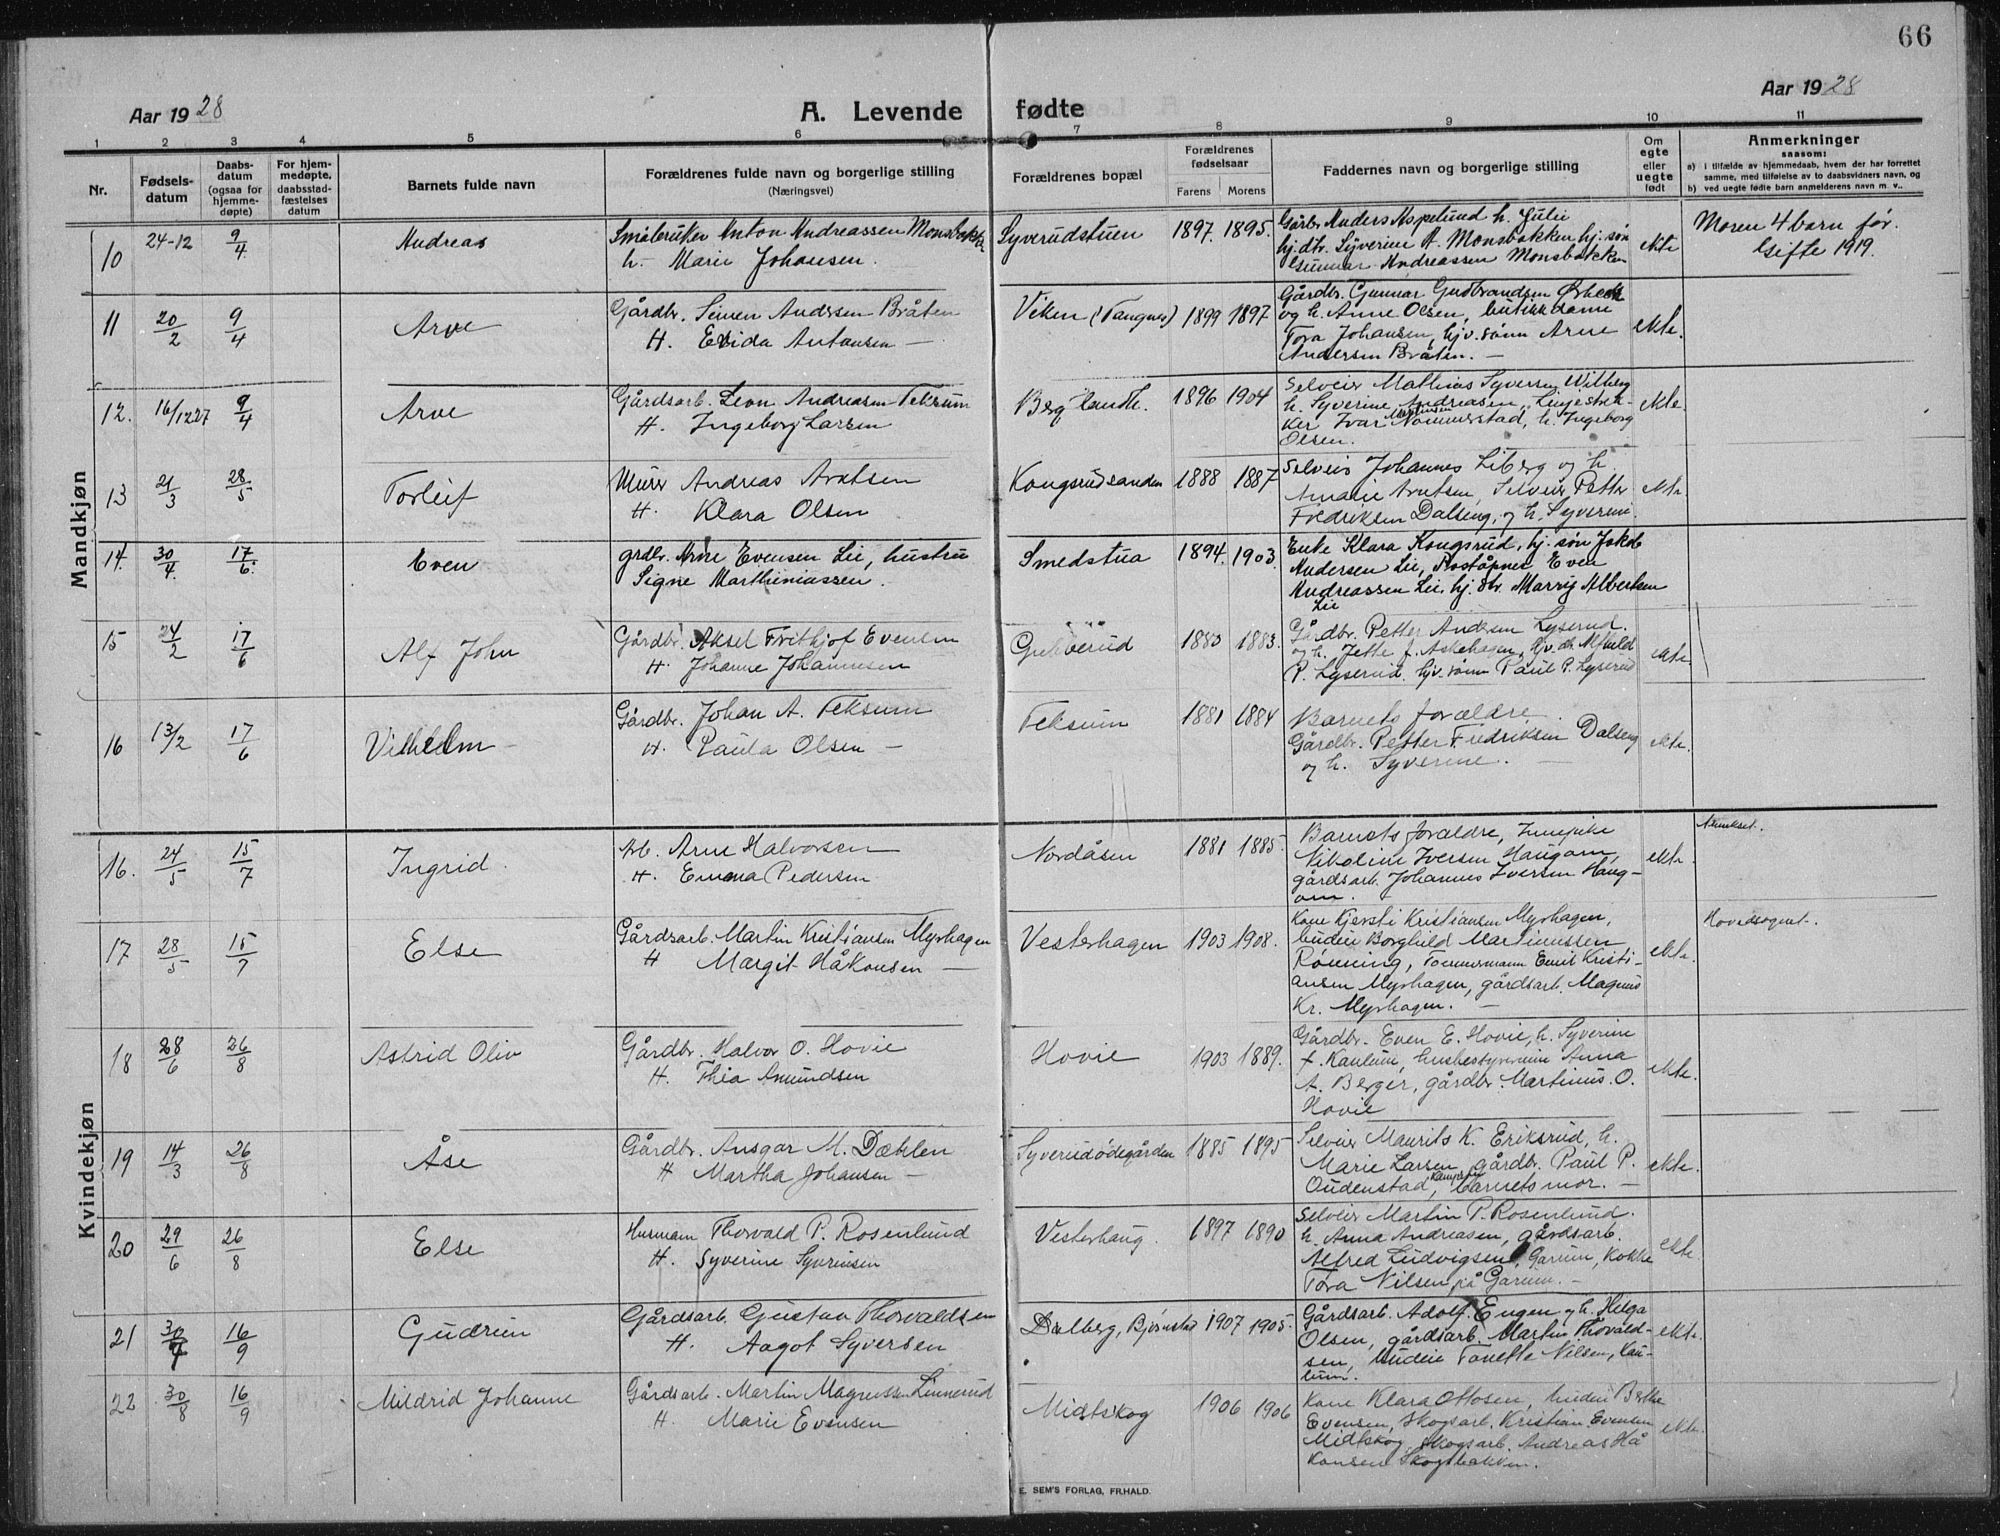 66
Aar 1928
A. Levende fødte
Aar 1928
1 2 3 4 5 6 7 8 9 10 11
Nr.
Fødsels-
datum
Daabs-
datum
(ogsaa for
hjemme-
døpte)
For hjem-
medøpte,
daabsstad-
fæstelses
datum
Barnets fulde navn
Forældrenes fulde navn og borgerlige stilling
(Næringsvei)
Forældrenes bopæl
Forældrenes
fødselsaar
Farens Morens
Faddernes navn og borgerlige stilling
Om
egte
eller
uegte
født
Anmerkninger
saasom:
a) i tilfælde av hjemmedaab, hvem der har forrettet
samme, med tilføielse av to daabsvidners navn, og
b) ved uegte fødte barn anmelderens navn m. v..
Mandkjøn
10 24-12 9/4 Andreas
Småbruker Anton Andreassen Monsbakken
h. Marie Johansen.
Syverudstuen 1897. 1895.
Gårbr Anders Aspelund h. Julie
hj. dtr. Syverine A. Monsbakken hj. søn
Gunnar Andreassen Monsbakken
ekte
Moren 4 barn før.
Gifte 1919.
11 20/2 9/4 Arve
Gårdbr. Simen Andersen Bråten
H. Elida Antonsen —
Viken (Tangnes) 1899 1897
Gårdbr. Gunnar Gudbrandsen Ørbeck
og h. Anne Olsen, butikkdame
Tora Johansen, hjv. sønn Arne
Andersen Bråten. —
ekte.
12. 16/12 27 9/4 Arve
Gårdsarb. Leon Andreasen Teksum
H. Ingeborg Larsen
Berg 1896 1904
Selveier Mathias Syversen Wilberg
h. Syverine Andreasen, Linjestrek-
ker Ivar Nommerstad, h. Ingeborg
Olsen.
ekte.
13 21/3 28/5 Torleif
Murer Andreas Arntsen
H. Klara Olsen
Kongsrudsanden 1888 1887
Selveier Johannes Liberg og h.
Amalie Arntsen, Selveier Petter
Fredriksen Dalseng, og h. Syverine.
ekte
14. 30/4. 17/6. Even
grdbr. Arne Evensen Lie, hustru
Signe Marthiniussen.
Smedstua 1894. 1903.
Enke Klara Kongsrud, hj. søn Jakob
Andersen Lie, Poståpner Even
Andreassen Lie, hj. dtr. Marry Albertsen
Lie
15 24/2 17/6 Alf John
Gårdbr. Aksel Frithjof Evensen
H. Johanne Johannesen
Grekkerud 1880 1883.
Gårdbr. Petter Andersen Lyserud.
og h. Jette f. Askehagen, hjv. dtr. Alfhild
P. Lyserud, hjv. sønn Paul P. Lyserud
ekte
16 13/2 17/6 Vilhelm
Gårdbr. Johan A. Teksum
H. Paula Olsen —
Teksum 1881 1884
Barnets forældre.
Gårdbr. Petter Fredriksen Dalseng
og h. Syverine.
ekte.
Kvindekjøn
16. 24/5 15/7 Ingrid
Arb. Arne Halvorsen
H. Emma Pedersen
Nordåsen 1881 1885.
Barnets forældre, Innepike
Nikoline Iversen Haugom,
gårdsarb. Johannes Iversen Haug-
om.
ekte.
17 28/5 15/7 Else
Gårdsarb. Martin Kristiansen Myrhagen
H Margit Håkonsen —
Vesterhagen 1903 1908.
Kone Kjersti Kristiansen Myrhagen,
budeie Borghild Martinussen
Rønning, Tømmermann Emil Kristi-
ansen Myrhagen, gårdsarb. Magnus
Kr. Myrhagen. —
ekte.
Hovedsognet.
18 28/6 26/8 Astrid Oliv
Gårdbr. Halvor O. Hovie
H. Thea Amundsen
Hovie 1903 1889.
Gårdbr. Even E. Hovie, h. Syverine
f. Kaulum, husbestyrerinne Anna
A. Berger, gårdbr. Martinus O.
Hovie
ekte.
19 14/3 26/8 Åse
Gårdbr. Ansgar M. Dæhlen
H Martha Johansen —
Syverudødegården 1885 1895
Selveier Maurits K. Eriksrud, h.
Marie Larsen, gårdbr. Paul P.
Oudenstad, barnets mor. —
ekte.
20 29/6 26/8 Else
Husmann Thorvald P. Rosenlund
H. Syverine Syvrinsen
Vesterhaug. 1897 1890
Selveier Martin P. Rosenlund.
h. Anna Andreasen, gårdsarb.
Alfred Ludvigsen, Garum, Kokke
Tora Nilsen på Garum. —
ekte.
21 30/7 16/9 Gudrun
Gårdsarb. Gustav Thorvaldsen
H. Aagot Syversen
Dalberg, Bjørnstad 1907 1905.
Gårdsarb. Adolf Eugen og h. Helga
Olsen, gårdsarb. Martin Thovald-
sen, budeie Tonette Nilsen, Kau-
lum.
ekte.
22 30/8 16/9 Mildrid Johanne
Gårdsarb. Martin Magnussen Linnerud
H. Marie Evensen
Midtskog 1906 1906
Kone Klara Ottosen, budeie Berthe
Evensen, Skogsarb. Kristian Evensen
Midtskog, Skogsarb. Andreas Hå
konsen Skogsbakken.
ekte.
E. SEM'S FORLAG, FR.HALD.